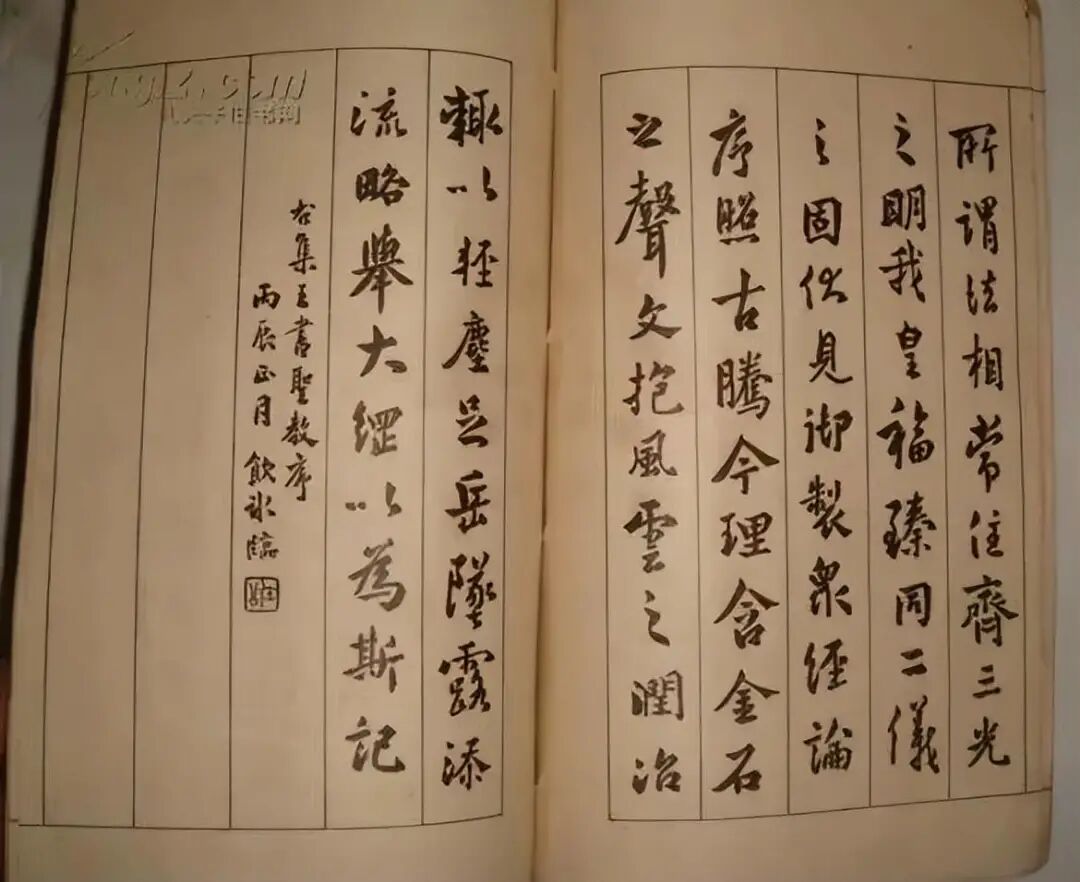 所謂法相常住齊三光
之明我皇福臻同二儀
之固伏見御製衆經論
序照古騰今理含金石
之聲文抱風雲之潤治
輙以輕塵足岳墜露添
流略舉大綱以為斯記
右集王書聖教序
丙辰正月 飲冰臨